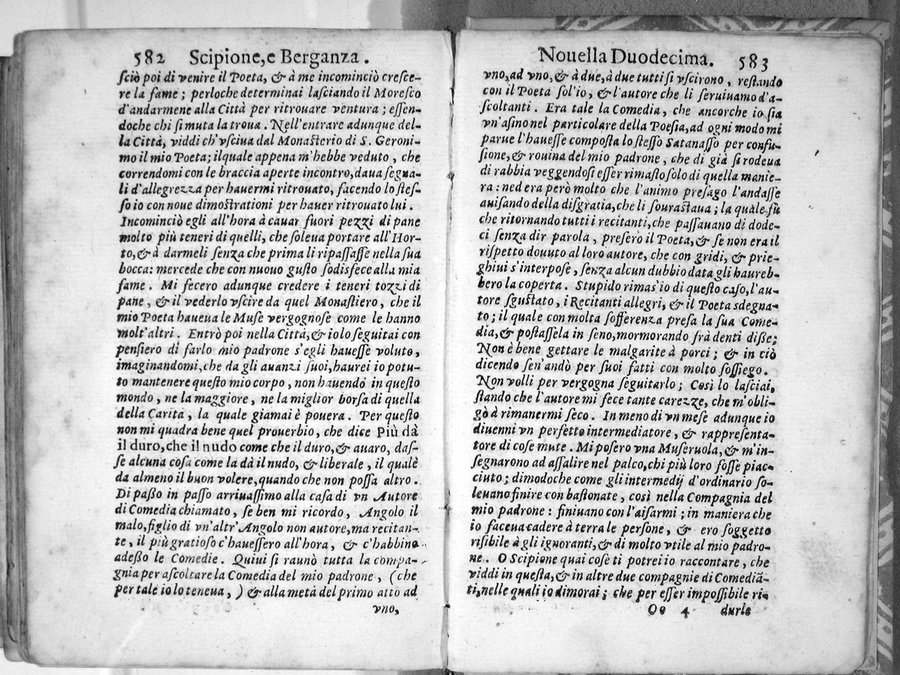 582 Scipione, e Berganza.
sciò poi di venire il Poeta, & à me incominciò cresce-
re la fame; perloche determinai lasciando il Moresco
d'andarmene alla Città per ritrouare ventura; essen-
doche chi si muta la troua. Nell'entrare adunque del-
la Città, viddi ch'vsciua dal Monasterio di S. Geroni-
mo il mio Poeta; ilquale appena m'hebbe veduto, che
correndomi con le braccia aperte incontro, daua segna-
li d'allegrezza per hauermi ritrouato, facendo lo stes-
so io con noue dimostrationi per hauer ritrouato lui.
Incominciò egli all'hora à cauar fuori pezzi di pane
molto più teneri di quelli, che soleua portare all'Hor-
to, & à darmeli senza che prima li ripassasse nella sua
bocca: mercede che con nuouo gusto sodisfece alla mia
fame. Mi fecero adunque credere i teneri tozzi di
pane, & il vederlo vscire da quel Monastiero, che il
mio Poeta haueua le Muse vergognose come le hanno
molt'altri. Entrò poi nella Città, & iolo seguitai con
pensiero di farlo mio padrone s'egli hauesse voluto,
imaginandomi, che da gli auanzi suoi, haurei io potu-
to mantenere questo mio corpo, non hauendo in questo
mondo, ne la maggiore, ne la miglior borsa di quella
della Carità, la quale giamai è pouera. Per questo
non mi quadra bene quel prouerbio, che dice Più dà
il duro, che il nudo come che il duro, & auaro, das-
se alcuna cosa come la dà il nudo, & liberale, il quale
da almeno il buon volere, quando che non possa altro.
Di passo in passo arriuassimo alla casa di vn Autore
di Comedie chiamato, se ben mi ricordo, Angolo il
malo, figlio di vn'altr'Angolo non autore, ma recitan-
te, il più gratioso c'hauessero all'hora, & c'habbino
adesso le Comedie. Quiui si raunò tutta la compa-
gnia per ascoltare la Comedia del mio padrone, (che
per tale io lo teneua,) & alla metà del primo atto ad
vno,
Nouella Duodecima. 583
vno, ad vno, & à due, à due tutti si vscirono, restando
con il Poeta sol'io, & l'autore che li seruiuamo d'a-
scoltanti. Era tale la Comedia, che ancorche io sia
vn'asino nel particolare della Poesia, ad ogni modo mi
parue l'hauesse composta lo stesso Satanasso per confu-
sione, & rouina del mio padrone, che di già si rodeua
di rabbia veggendosi esser rimasto solo di quella manie-
ra: ned era però molto che l'animo presago l'andasse
auisando della disgratia, che li sourastaua; la quale fù
che ritornando tutti i recitanti, che passauano di dode-
ci senza dir parola, presero il Poeta, & se non era il
rispetto douuto al loro autore, che con gridi, & prie-
ghiui s'interpose, senza alcun dubbio data gli haureb-
bero la coperta. Stupido rimas'io di questo caso, l'au-
tore sgustato, i Recitanti allegri, & il Poeta sdegna-
to; il quale con molta sofferenza presa la sua Come-
dia, & postassela in seno, mormorando frà denti disse;
Non è bene gettare le malgarite à porci; & in ciò
dicendo sen'andò per suoi fatti con molto sossiego.
Non volli per vergogna seguitarlo; Così lo lasciai,
stando che l'autore mi fece tante carezze, che m'obli-
gò à rimanermi seco. In meno di vn mese adunque io
diuenni vn perfetto intermediatore, & rappresenta-
tore di cose mute. Mi posero vna Museruola, & m'in-
segnarono ad assalire nel palco, chi più loro fosse piac-
ciuto; dimodoche come gli intermedij d'ordinario so-
leuano finire con bastonate, così nella Compagnia del
mio padrone: finiuano con l'aisarmi; in maniera che
io faceua cadere à terra le persone, & ero soggetto
risibile à gli ignoranti, & di molto vtile al mio padro-
ne. O Scipione quai cose ti potrei io raccontare, che
viddi in questa, & in altre due compagnie di Comediā-
ti, nelle quali io dimorai; che per esser impossibile ri-
Oo 4 durle